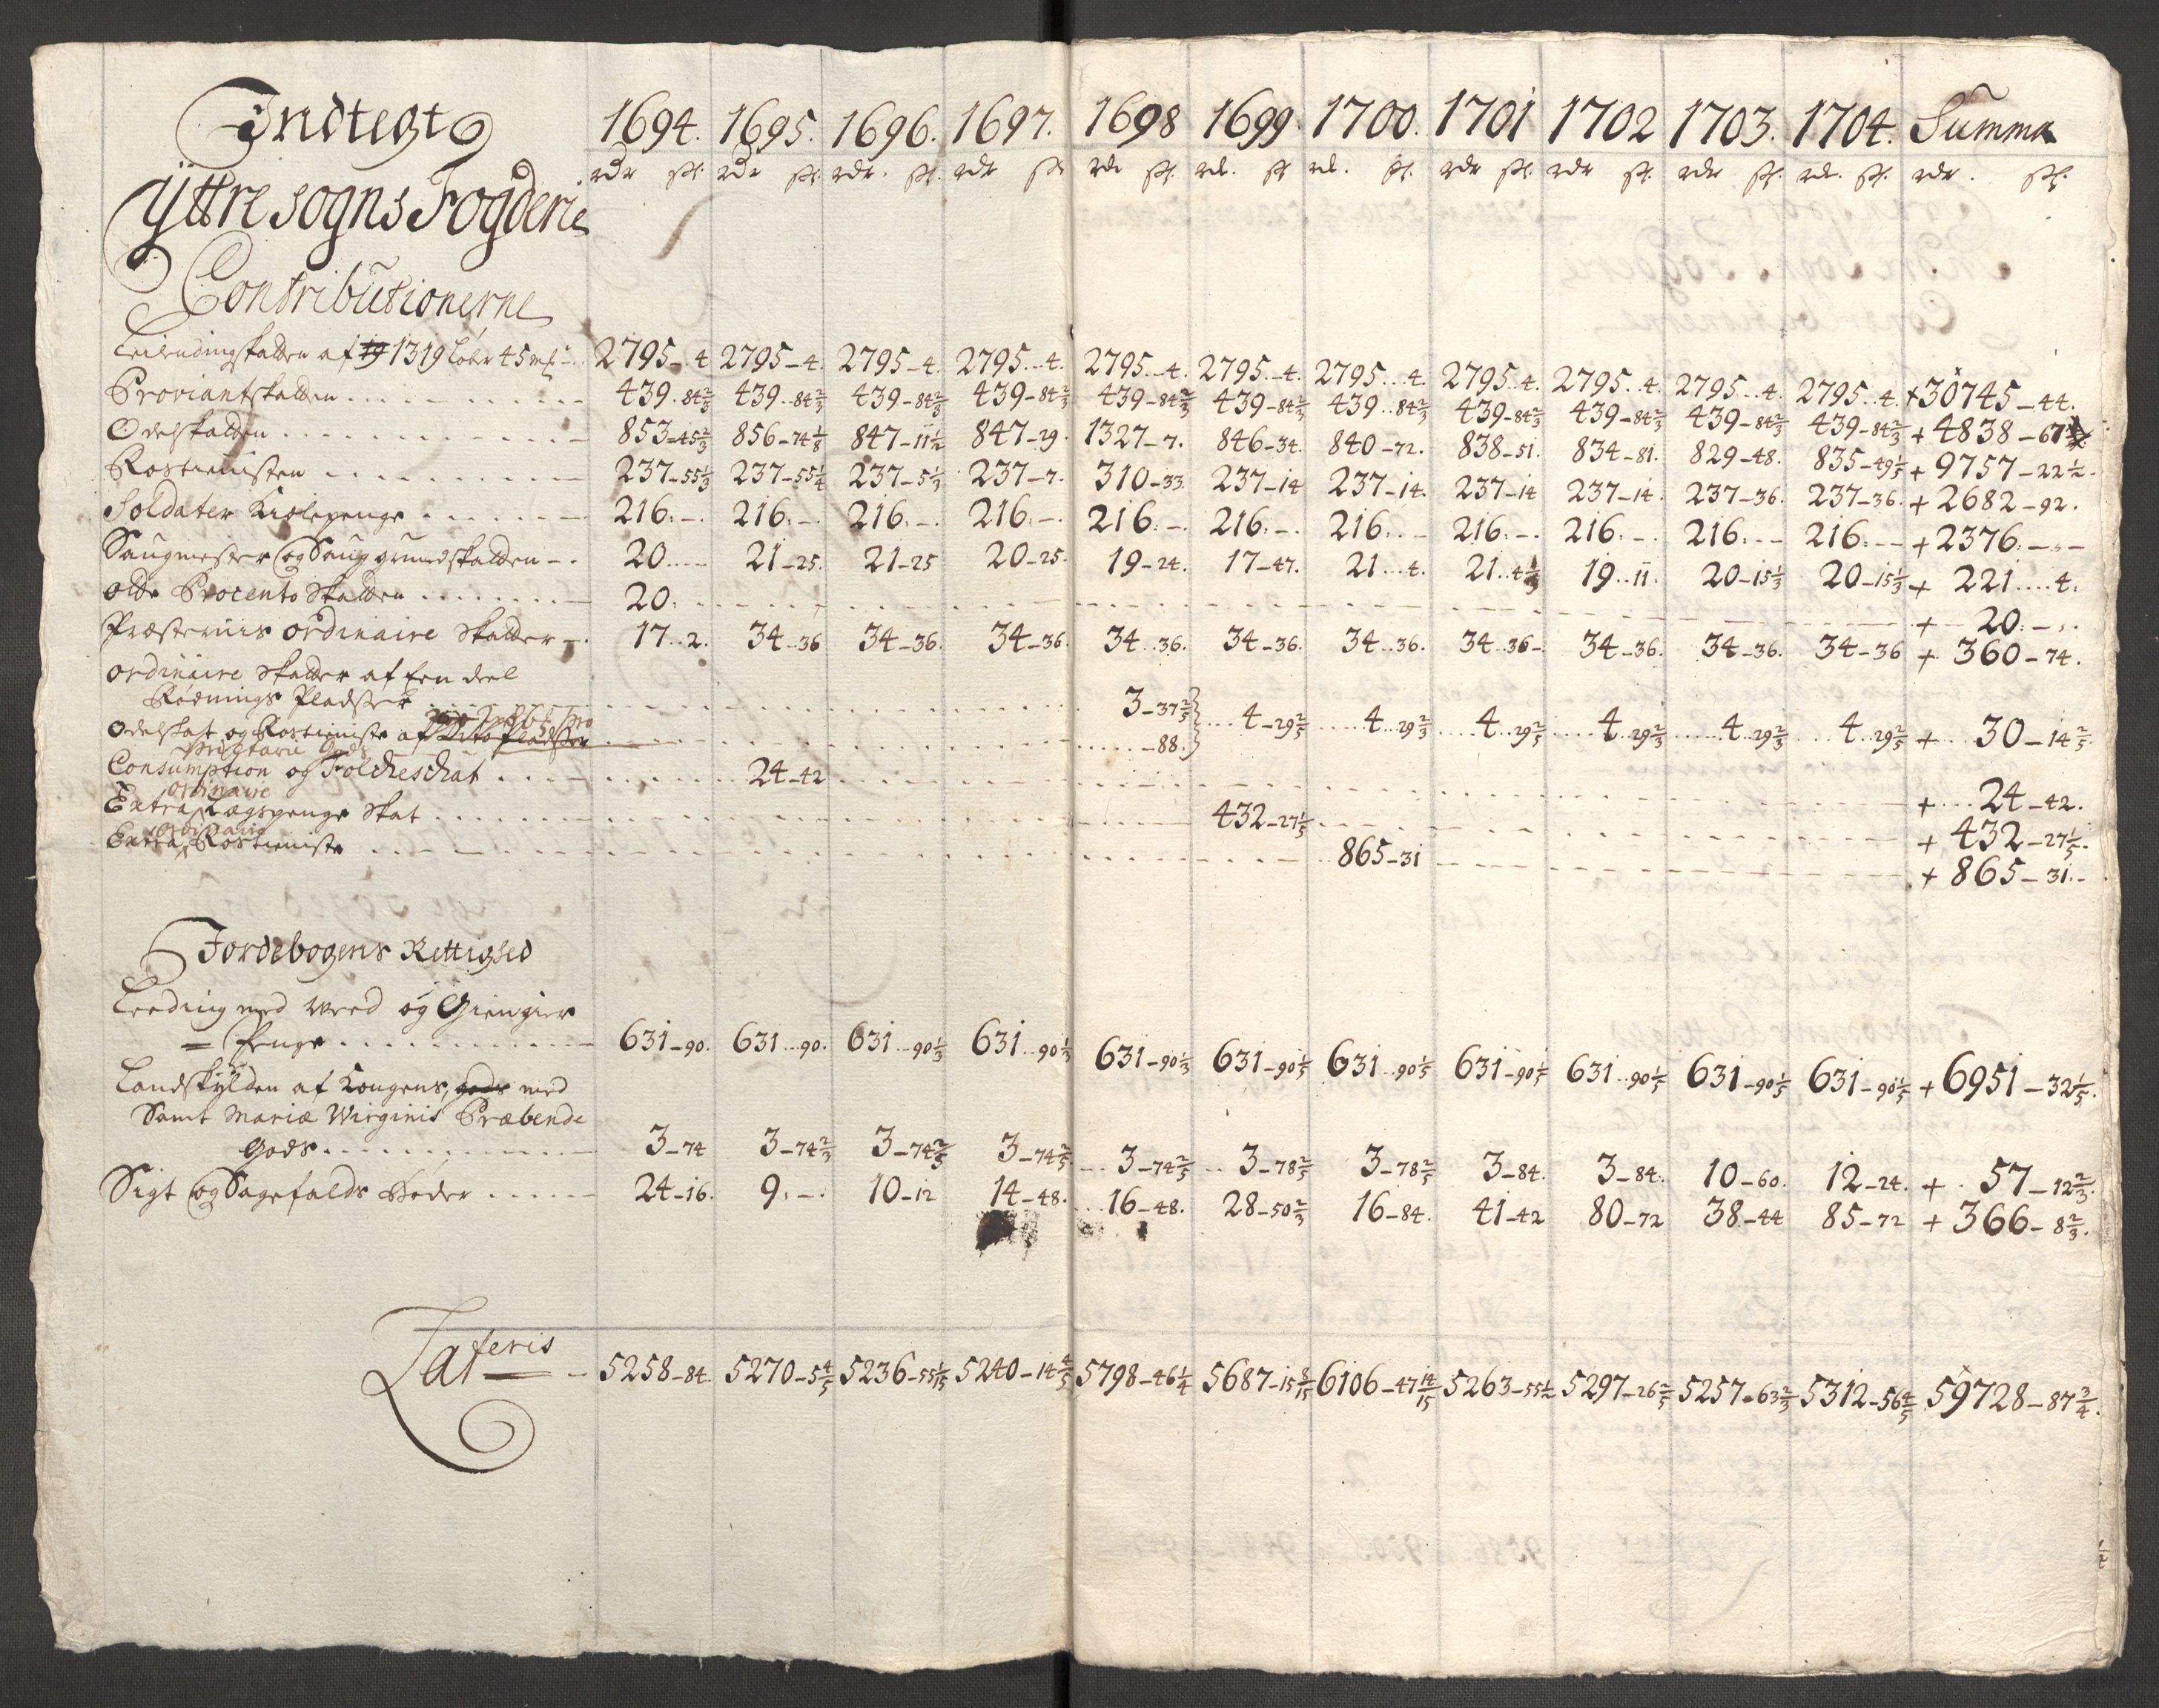 Indtegt 1694. 1695. 1696. 1697. 1698 1699 1700. 1701 1702 1703. 1704. Summa
rdr ſſ. rdr ſſ. rdr. ſſ. rdr ſſ rdr ſſ. rd. ſſ rd. ſſ. rdr ſſ. rdr ſſ. rdr ſſ. rd. ſſ. rdr. ſſ.
Ÿttre sogns Fogderie
Contributionerne
Leilendingskatten af 1319 Løber 45 mk 2795-4 2795-4. 2795-4. 2795-4. 2795-4. 2795-4. 2795-4. 2795-4. 2795-4. 2795-4. 2795-4. + 30745-44.
Proviantskatten 439-84 2/3 439-84 2/3 439-84 2/3 439-84 2/3 439-84 2/3 439-84 2/3 439-84 2/3 439-84 2/3 439-84 2/3 439-84 2/3 439-84 2/3 + 4838-67
Odelskatten 853-45 2/3 856-74 1/8 847-11 1/2 847-29. 1327-7. 846-34. 840-72. 838-51. 834-81. 829-48. 835-49 1/5 + 9757-22 1/2.
Rostienisten 237-55 1/3 237-55 1/4 237-5 1/3 237-7. 310-33. 237-14 237-14. 237-14 237-14. 237-36. 237-36. + 2682-92.
Soldater Kiolepenge 216.-. 216.-. 216.-. 216.-. 216.-. 216.-. 216.- 216.-. 216.-. 216.- 216.- + 2376.-
Saugmester og Saug grundskatten 20 21-25. 21-25 20-25. 19-24. 17-47. 21-4. 21-4 1/3 19-11. 20-15 1/3 20-15 1/3 + 221-4.
otte Procento Skatten 20. + 20.-
Præsternis ordinaire Skatter 17-2. 34-36 34-36. 34-36. 34-36. 34-36. 34-36. 34-36- 34-36. 34-36. 34-36 + 360-74.
ordinaire Skatter af Een deel
Rødnings Pladser 3-37 2/5 4-29 2/5 4-29 2/3 4-29 2/5 4-29 2/3 4-29 2/3 4-29 2/5 + 30-14 2/5.
Odelskat og Rostieniste af Dito Pladser -88.
Consumption og Folcheschat 24-42 + 24-42.
Extra ordinaire Lægspenge Skat 432-27 1/5 + 432-27 1/5.
Extra ordinaire Rostieniste 865-31 + 865-31.-
Jordebogens Rettighed
Leeding med Weed og Giengier
= Penge 631-90. 631-90. 631-90 1/3 631-90 1/3 631-90 1/3 631-90 1/5 631-90 1/5 631-90 1/5 631-90 1/5 631-90 1/5 631-90 1/5 + 6951-32 1/5.
Landskylden af Kongens, gods med
Samt Mariæ Wirginis Præbende
Gods 3-74 3-74 2/3 3-74 2/5 3-74 2/5 3-74 2/5 3-78 2/5 3-78 2/5 3-84. 3-84. 10-60. 12-24. + 57-12 2/3.
Sigt og Sagefalds Bøder 24-16. 9.-. 10-12 14-48. 16-48. 28-50 2/3 16-84. 41-42 80-72 38-44 85-72 + 366-8 2/3.
Lateris 5258-84. 5270-5 4/5 5236-55 1/15 5240-14 4/5 5798-46 1/4 5687-15 8/15 6106-47 14/15 5263-55 1/2 5297-26 2/5 5257-63 2/3 5312-56 4/5 59728-87 3/4.